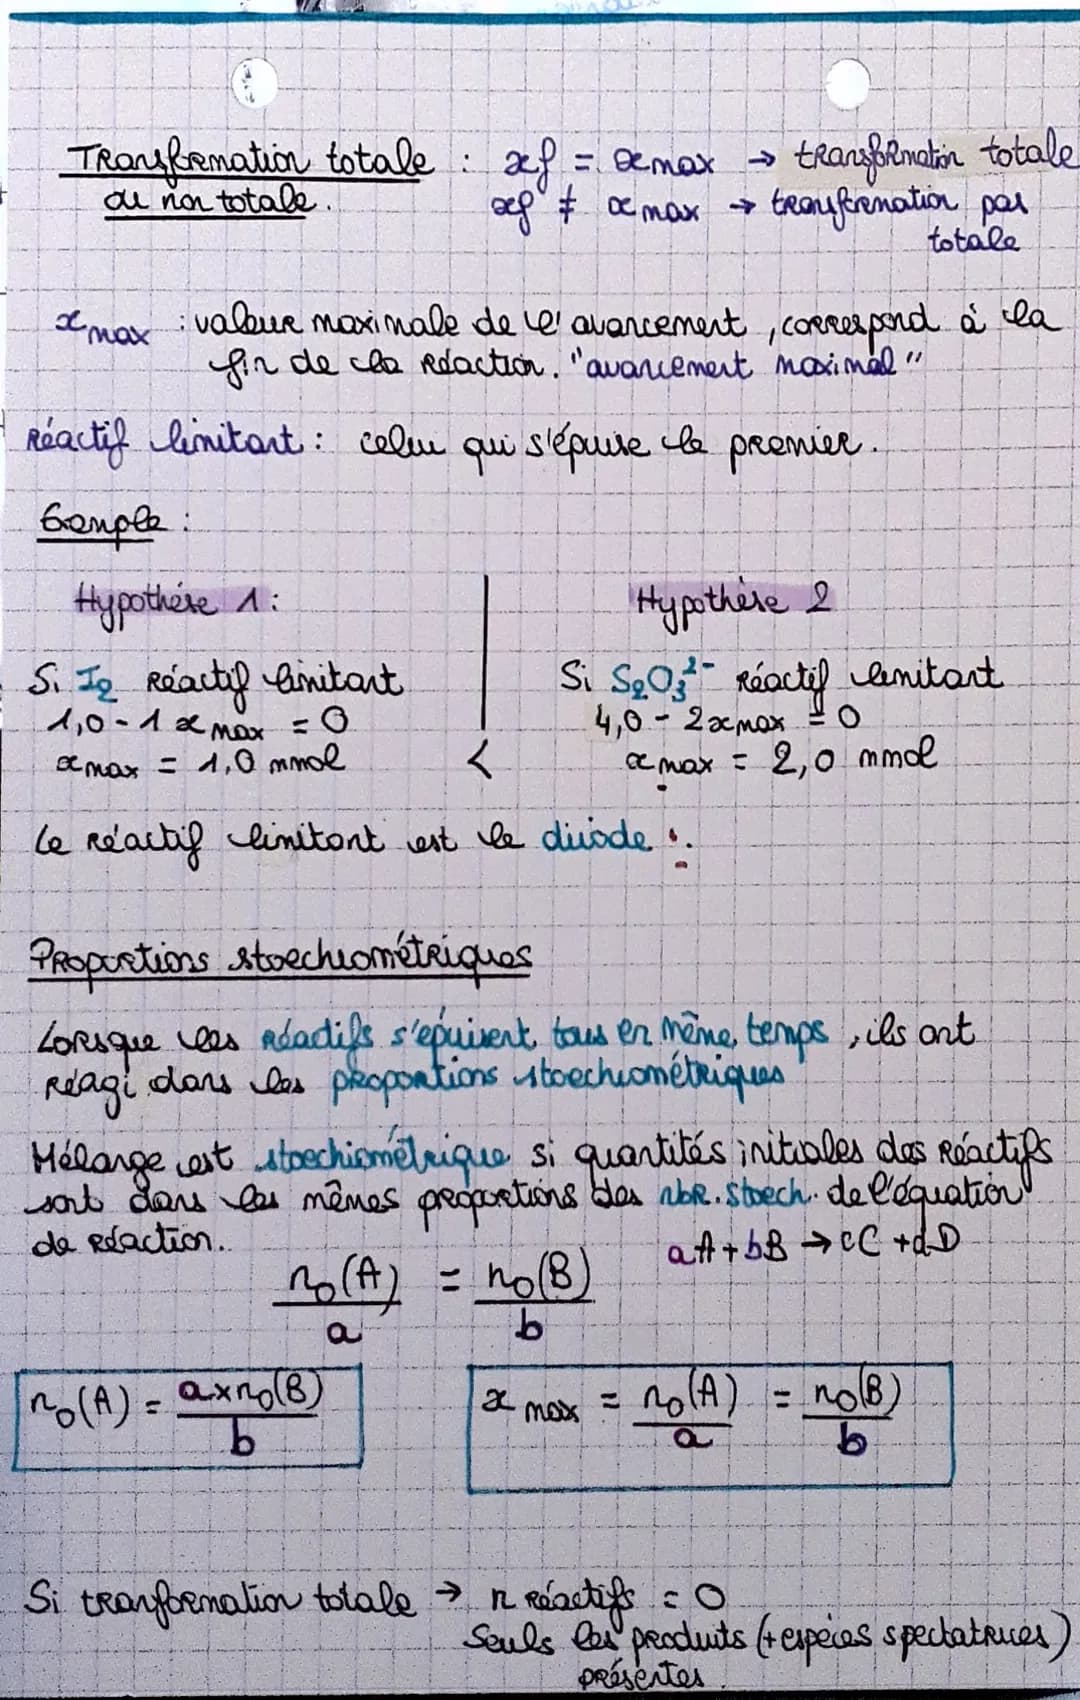 Transformation totale : xf = xmax → transformation totale
ou non totale. xf ≠ xmax → transformation pas
totale
xmax : valeur maximale de l'avancement, correspond à la
fin de la réaction. "avancement maximal"
Réactif limitant : celui qui s'épuise le premier.
Exemple :
Hypothèse 1 : Hypothèse 2
Si I₂ réactif limitant Si S₂O₃²⁻ réactif limitant
1,0 - 1 xmax = 0 4,0 - 2xmax = 0
xmax = 1,0 mmol < xmax = 2,0 mmol
Le réactif limitant est le diiode :
Proportions stoechiométriques
Lorsque les réactifs s'épuisent tous en même temps, ils ont
réagi dans les proportions stoechiométriques
Mélange est stoechiométrique si quantités initiales des réactifs
sont dans les mêmes proportions des nbr. stoech. de l'équation
de réaction. aA + bB → cC + dD
n₀(A)/a = n₀(B)/b
n₀(A) = a×n₀(B)/b xmax = n₀(A)/a = n₀(B)/b
Si transformation totale → n réactifs = 0
Seuls les produits (+ espèces spectatrices)
présentes